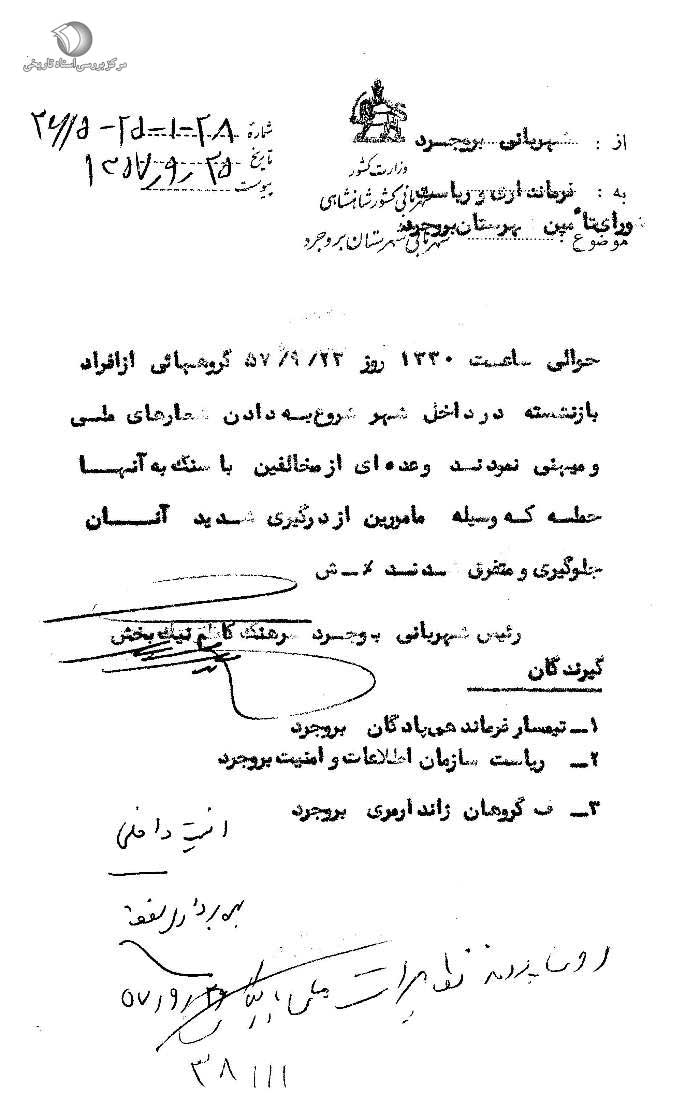 مرکز بررسی اسناد تاریخی
شماره ۲۸-۱-۲۵-۲۶/۱۵
تاریخ ۱۳۵۷/۹/۲۵
پیوست
از : شهربانی بروجرد
وزارت کشور
به : فرمانداری و ریاست
شهربانی کشور شاهنشاهی
شورای تأمین شهرستان بروجرد
موضوع :
شهربانی شهرستان بروجرد
حوالی ساعت ۱۳۳۰ روز ۵۷/۹/۲۳ گروههائی ازافراد
بازنشسته درداخل شهر شروع به دادن شعارهای ملی
و میهنی نمودند وعده ای ازمخالفین با سنگ به آنهـا
حمله که وسیله مامورین ازدرگیری شدید آنـــان
جلوگیری و متفرق شدند ش
رئیس شهربانی بروجرد سرهنگ کاظم نیک بخش
گیرندگان
۱ــ تیمسار فرمانده هی پادگان بروجرد
۲ــ ریاست سازمان اطلاعات و امنیت بروجرد
۳ــ ف گروهان ژاندارمری بروجرد
امنیت داخلی
بهره برداری
پرونده تظاهرات
۵۷/۹/۲۶
۳۸۱۱۱